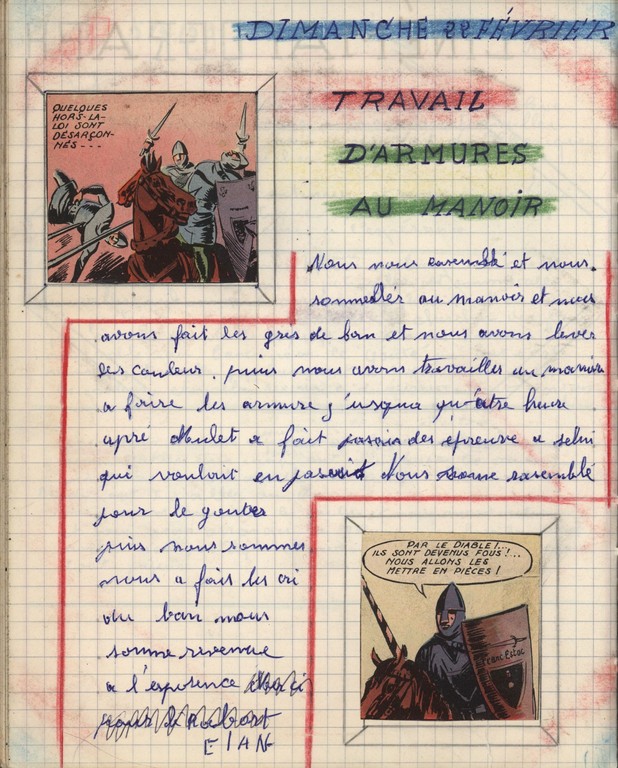 DIMANCHE 22 FÉVRIER
TRAVAIL
D'ARMURES
AU MANOIR
QUELQUES
HORS-LA-
LOI SONT
DÉSARÇON-
NÉS...
Nous nous rasemblé et nous
sommes allér au manoir et nous
avons fait les gris de ban et nous avons lever
les couleur. puis nous avons travailler au manoir
a faire les armure j'usqua qu'atre heure
apré Mulet a fait pasair des épreuve a selui
qui voulait en pasait Nous somme rasemblé
pour le gouter
puis nous sommes
nous a fait les cri
du ban nous
somme revenue
a l'esperence
ELAN
PAR LE DIABLE!..
ILS SONT DEVENUS FOUS!...
NOUS ALLONS LES
METTRE EN PIÈCES!
FRANC ESTOC